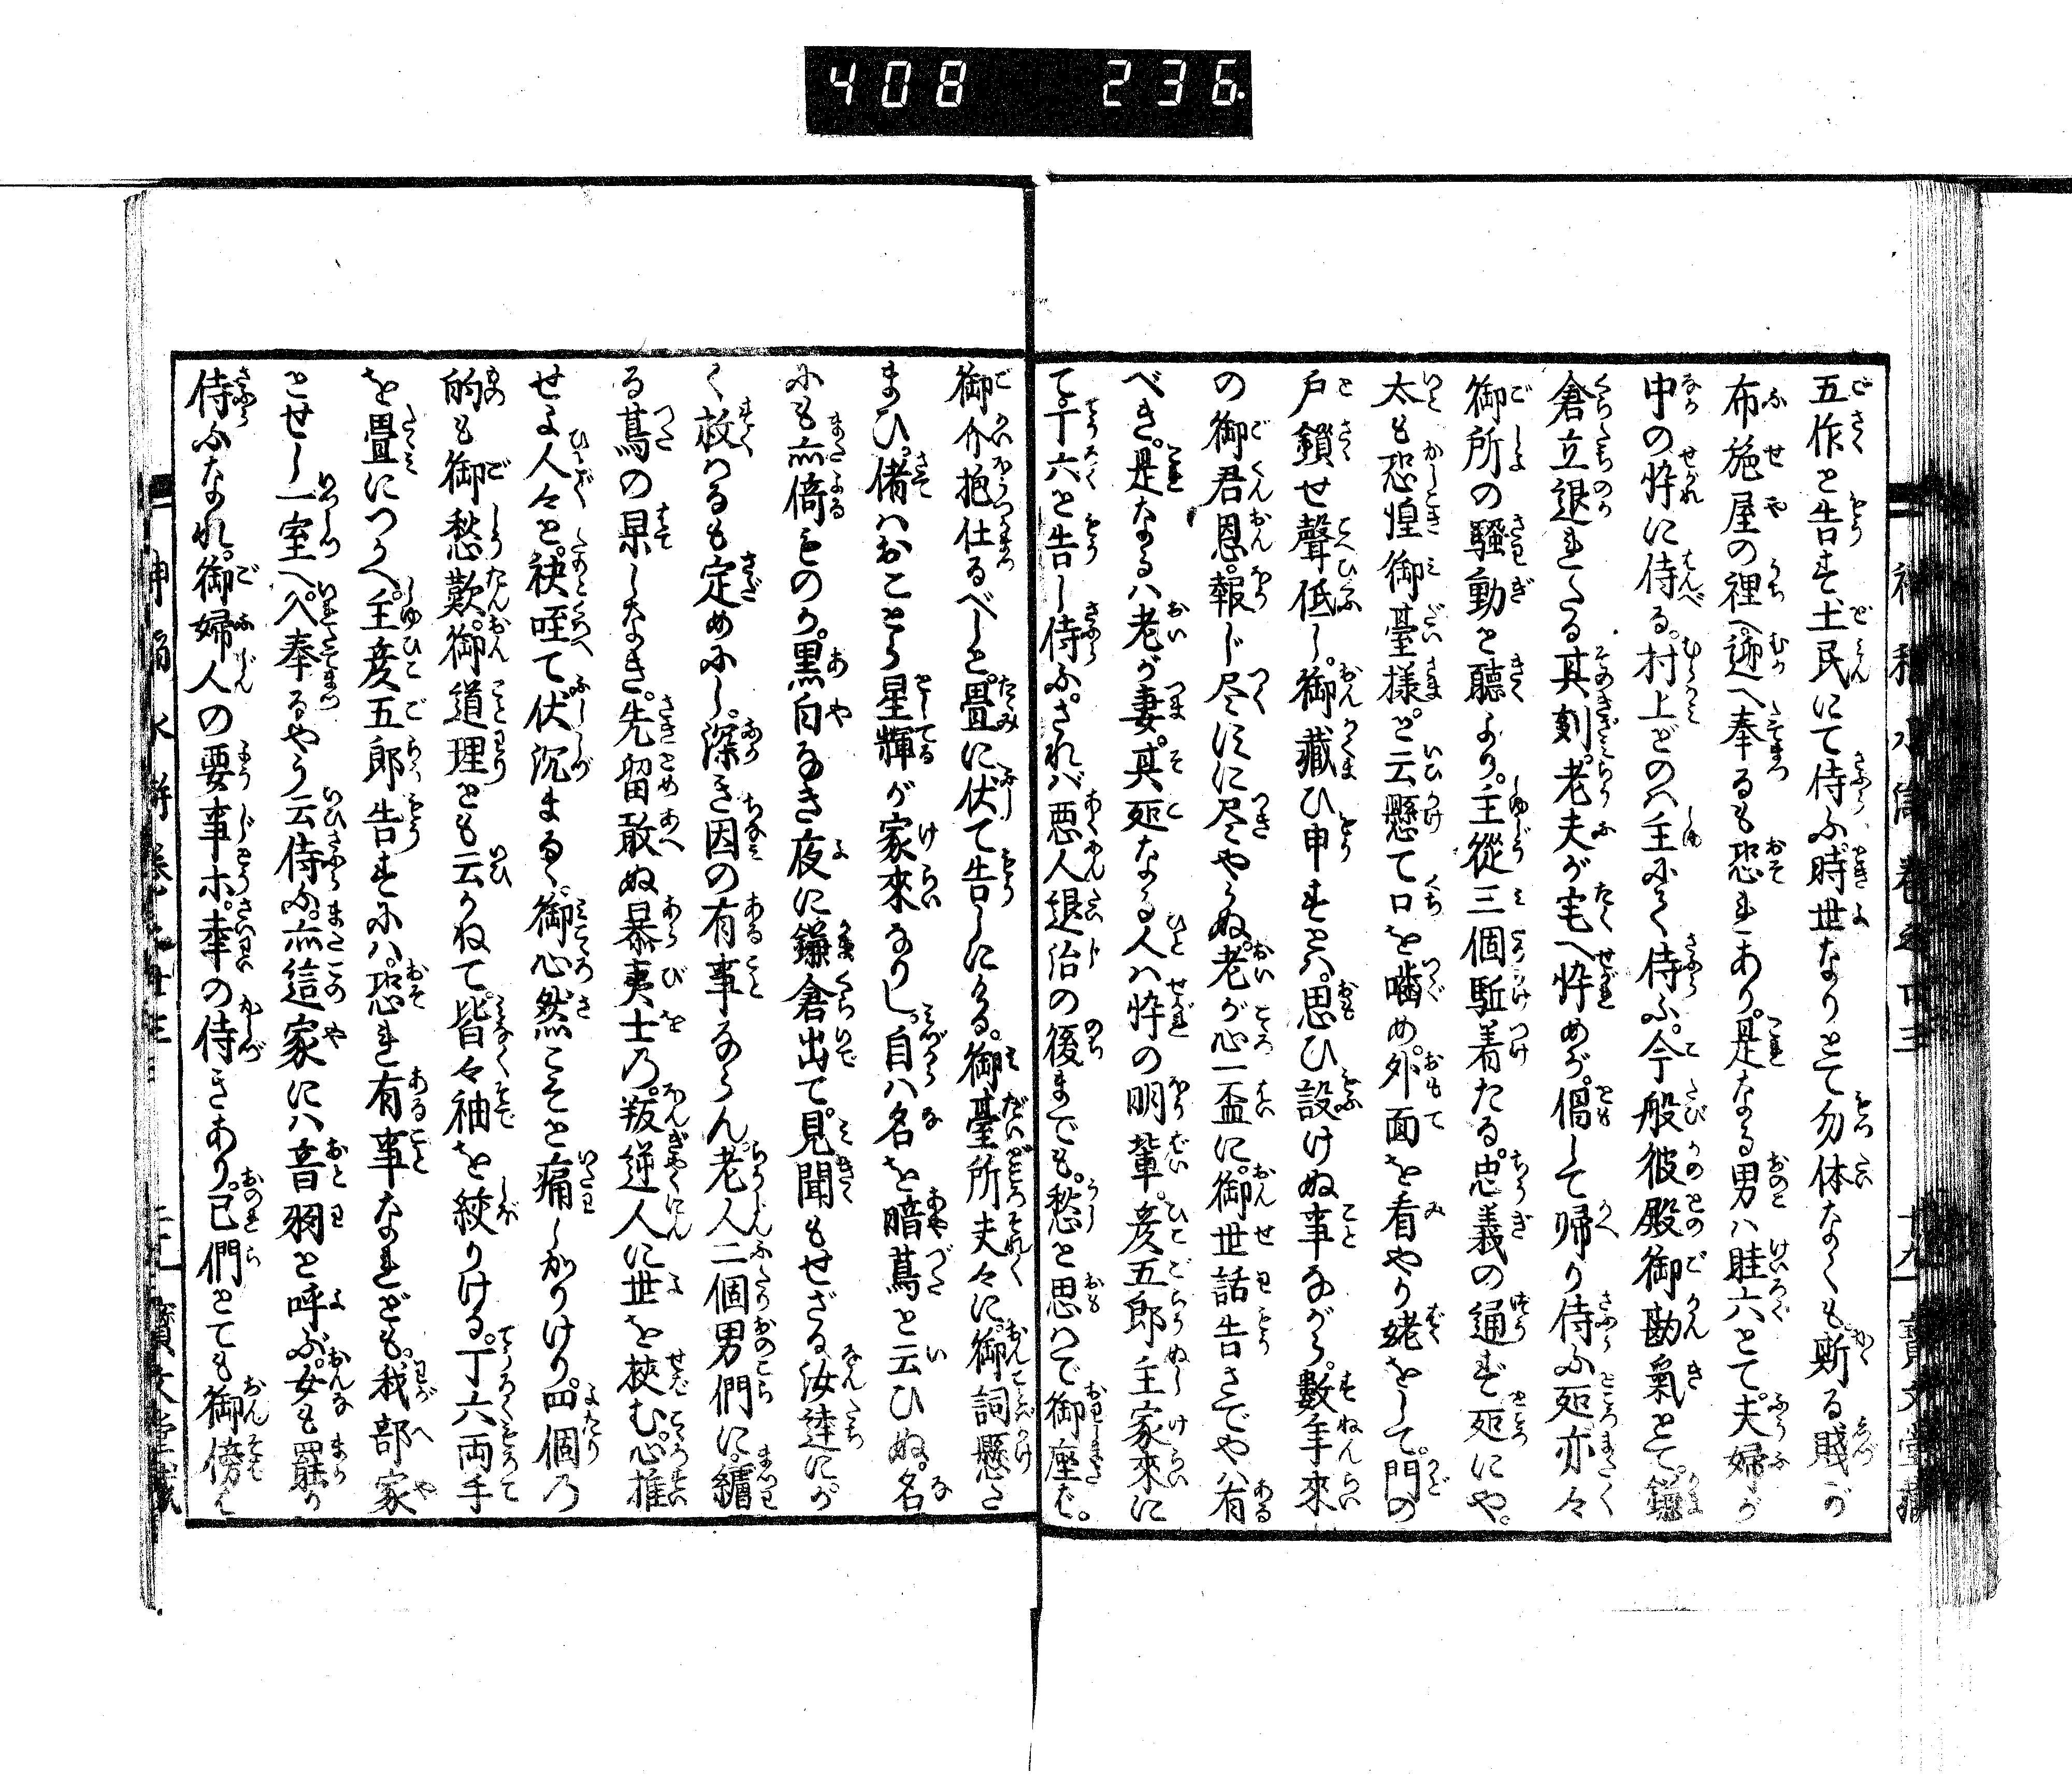 408 236
五作と告す、土民にて侍ふ。時世なりとて勿体なくも斯る賎が
布施屋の裡へ迎へ奉るも恐れあり。是なる男ハ畦六とて。夫婦が
中の悴に侍る。村上どのハ主にて侍ふ。今般彼殿御勘氣とて。鎌
倉立退れたる其刻。老夫が宅へ悴めが。倡して帰り侍ふ処亦々
御所の騒動と聽より。主從三個駈着たる。忠義の通ず処にや。
太も恐惶御臺様。と云懸て口を噛め。外面を看やり姥をして。門の
戸鎖せ聲低し。御藏ひ申すとハ。思ひ設けぬ事ながら。數年來
の御君恩。報じ尽すに尽やらぬ。老が心一盃に。御世話告さでやハ有
べき。是なるハ老が妻。其処なる人ハ悴の明輩。彦五郎主家來に
て。丁六と告し侍ふ。されバ悪人退治の後までも。愁と思ハで御座ば。
御介抱仕るべしと。畳に伏て告しにける。御臺所夫々に。御詞懸さ
まひ。偖ハおことら星輝が家來なりし。自ハ名を暗蔦と云ひぬ。名
にも亦倚ものか。黒白なき夜に鎌倉出て。見聞もせざる汝達にが
く救ハるも定めにし。深き因の有事ならん。老人二個男們に。纏
る蔦の果しなき。先留敢ぬ暴夷士乃。叛逆人に世を狹む。心推
せよ人々と。袂咥て伏沉まるゝ。御心然こそと痛しがりけり。四個乃
的も御愁歎。御道理とも云かねて。皆々袖を絞りける。丁六両手
を畳につかへ。主彦五郎告すにハ。恐れ有事なれども。我部家
とせし一室へ。入奉るやう云侍ふ。亦這家にハ音羽と呼ぶ。女も罷り
侍ふなれ。御婦人の要事ホ。幸の侍きあり。己們とても御傍を